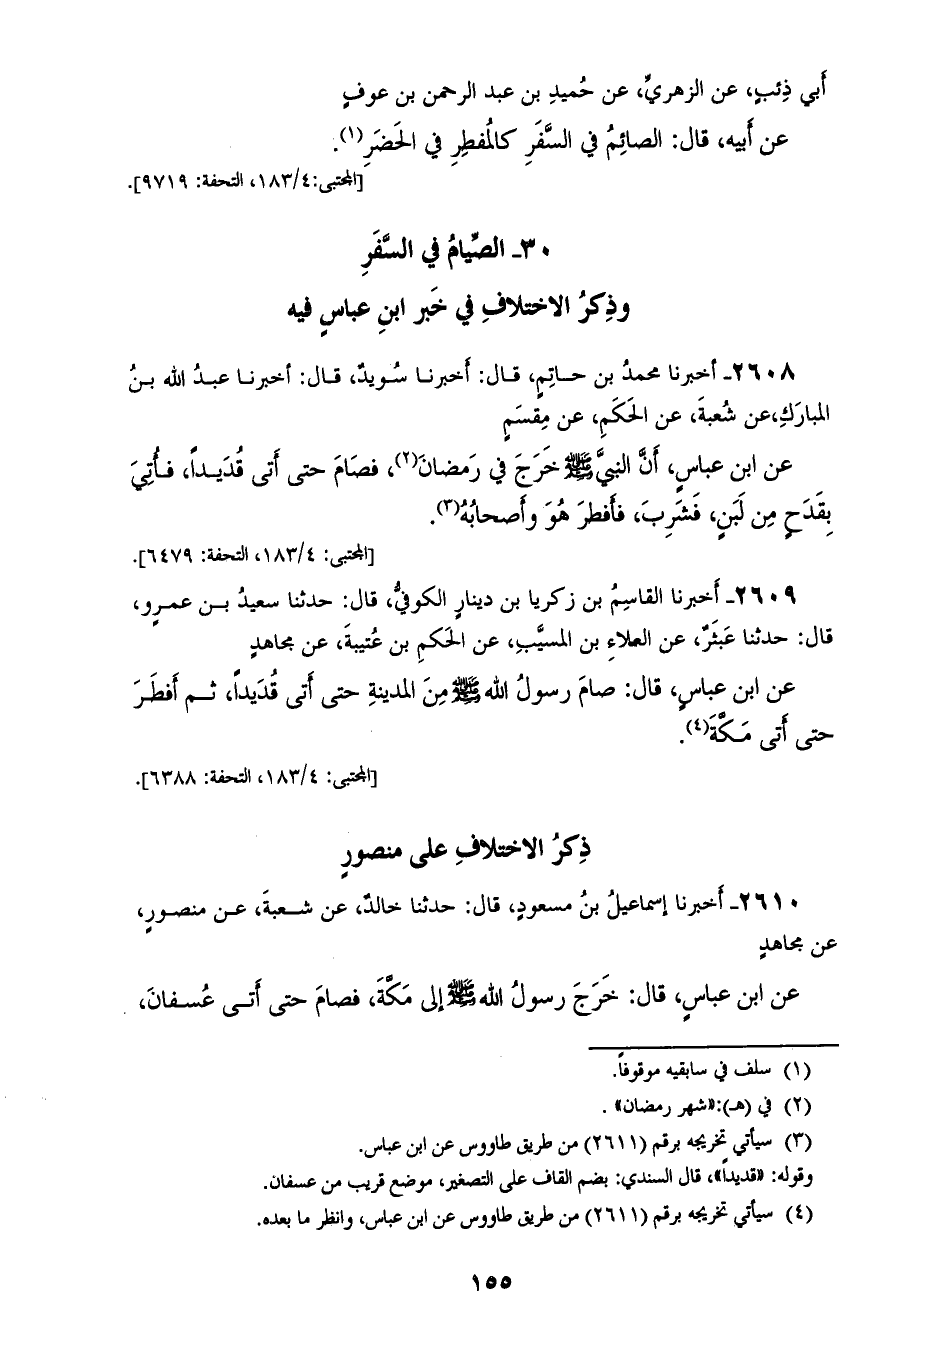 أَبي ذِئبٍ، عن الزهريِّ، عن حُميدِ بن عبد الرحمن بن عوفٍ
عن أَبيه، قال: الصائِمُ في السَّفَرِ كالمُفطِرِ في الحَضَرِ(١).
[المجتبى: ١٨٣/٤، التحفة: ٩٧١٩].
٣٠ـ الصِّيامُ في السَّفَرِ
وذِكرُ الاختلافِ في خَبر ابنِ عباسٍ فيه
٢٦٠٨ـ أخبرنا محمدُ بن حاتِمٍ، قال: أَخبرنا سُويدٌ، قال: أخبرنا عبدُ الله بنُ
المبارَكِ،عن شُعبةَ، عن الحَكَمِ، عن مِقسَمٍ
عن ابن عباسٍ، أَنَّ النبيَّ ﷺ خَرَجَ في رَمضانَ(٢)، فصَامَ حتى أتى قُدَيداً، فأُتِيَ
بِقَدَحٍ مِن لَبَنٍ، فَشَرِبَ، فأَفطرَ هُوَ وأَصحابُهُ(٣).
[المجتبى: ١٨٣/٤، التحفة: ٦٤٧٩].
٢٦٠٩ـ أَخبرنا القاسِمُ بن زكريا بن دينارٍ الكوفيُّ، قال: حدثنا سعيدُ بن عمرو،
قال: حدثنا عَبثَرٌ، عن العلاءِ بن المسيَّبِ، عن الحَكمِ بن عُتيبةَ، عن مجاهدٍ
عن ابن عباسٍ، قال: صامَ رسولُ الله ﷺ مِنَ المدينةِ حتى أَتى قُدَيداً، ثم أَفطَرَ
حتى أَتى مَكَّةَ(٤).
[المجتبى: ١٨٣/٤، التحفة: ٦٣٨٨].
ذِكرُ الاختلافِ على منصورٍ
٢٦١٠ـ أَخبرنا إسماعيلُ بنُ مسعودٍ، قال: حدثنا خالدٌ، عن شعبةَ، عن منصورٍ،
عن مجاهدٍ
عن ابن عباسٍ، قال: خَرَجَ رسولُ الله ﷺ إلى مَكَّةَ، فصامَ حتى أَتى عُسفانَ،
(١) سلف في سابقيه موقوفاً.
(٢) في (هـ):«شهر رمضان» .
(٣) سيأتي تخريجه برقم (٢٦١١) من طريق طاووس عن ابن عباس.
وقوله: «قديداً»، قال السندي: بضم القاف على التصغير، موضع قريب من عسفان.
(٤) سيأتي تخريجه برقم (٢٦١١) من طريق طاووس عن ابن عباس، وانظر ما بعده.
١٥٥